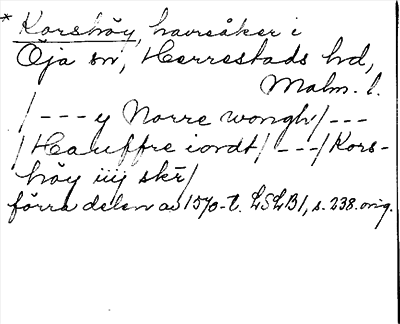 * Korshöy, havreåker i
Öja sn, Herrestads hd,
Malm. l.
/--- y Norre wongh/---
/Hauffre iordt/ ---/Kors-
höy iiij skr/
förra delen av 1570-t. LSLB1, s. 238. orig.